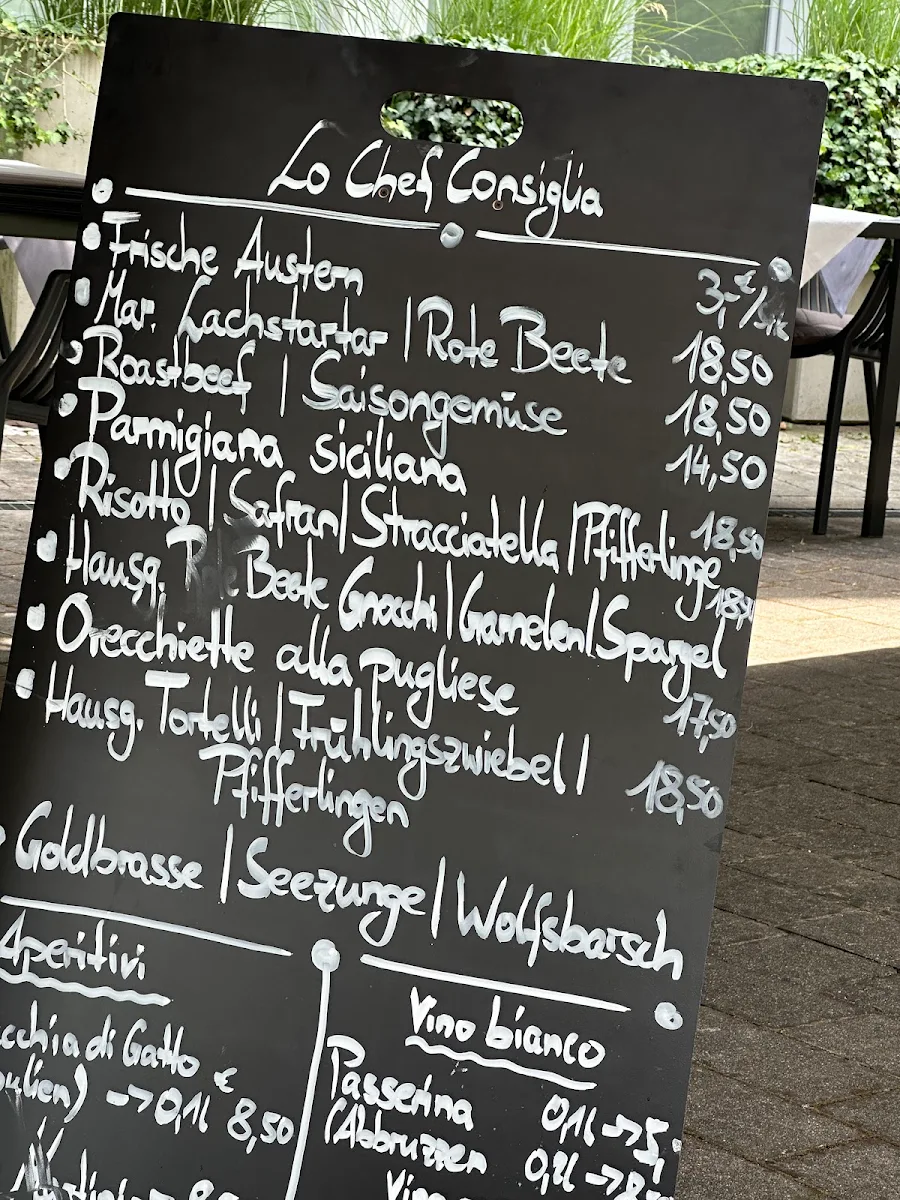 Lo Chef Consiglia
• Frische Austern 3,-€/Stk
• Mar. Lachstartar | Rote Beete 18,50
• Roastbeef | Saisongemüse 18,50
• Parmigiana siciliana 14,50
• Risotto | Safran | Stracciatella | Pfifferlinge 18,50
• Hausg. Beete Gnocchi | Garnelen | Spargel 18,50
• Orecchiette alla pugliese 17,50
• Hausg. Tortelli | Frühlingszwiebel |
Pfifferlingen 18,50
Goldbrasse | Seezunge | Wolfsbarsch
Aperitivi
cchia di Gatto €
→ 0,1l 8,50
Vino bianco
Passerina 0,1l → 5,
(Abbruzzen 0,2l → 8
Vino